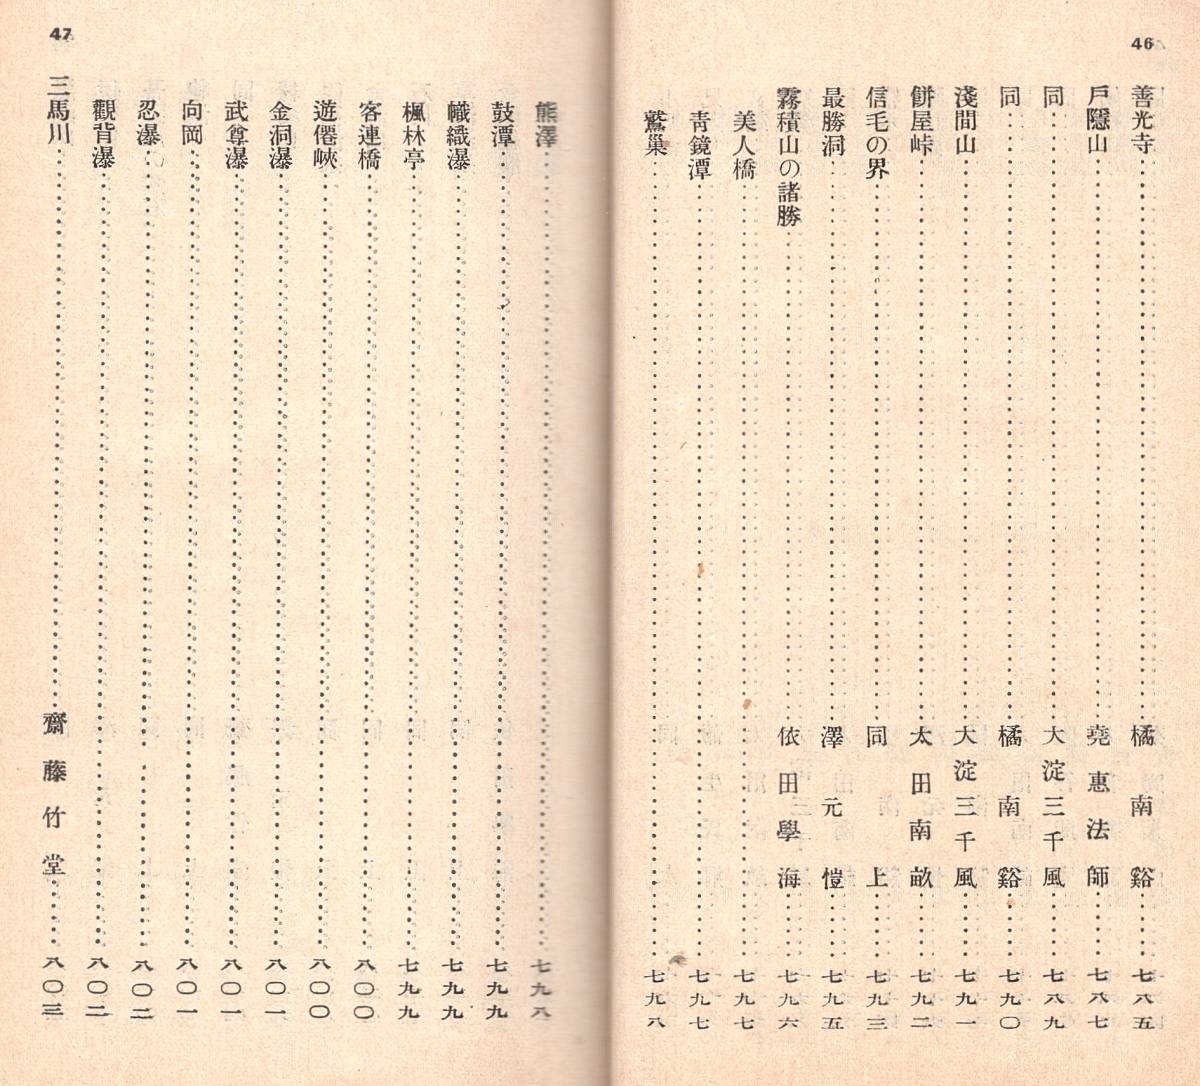 46
善光寺 橘南谿 七八五
戶隱山 堯惠法師 七八七
同 大淀三千風 七八九
同 橘南谿 七九〇
淺間山 大淀三千風 七九一
餠屋峠 太田南畝 七九二
信毛の界 同上 七九三
最勝洞 澤元愷 七九五
霧積山の諸勝 依田學海 七九六
美人橋 七九七
靑鏡潭 七九七
鷲巢 七九八
47
熊澤 七九八
鼓潭 七九九
幟織瀑 七九九
楓林亭 七九九
客連橋 八〇〇
遊僊峽 八〇〇
金洞瀑 八〇一
武尊瀑 八〇一
向岡 八〇一
忍瀑 八〇二
觀背瀑 八〇二
三馬川 齋藤竹堂 八〇三